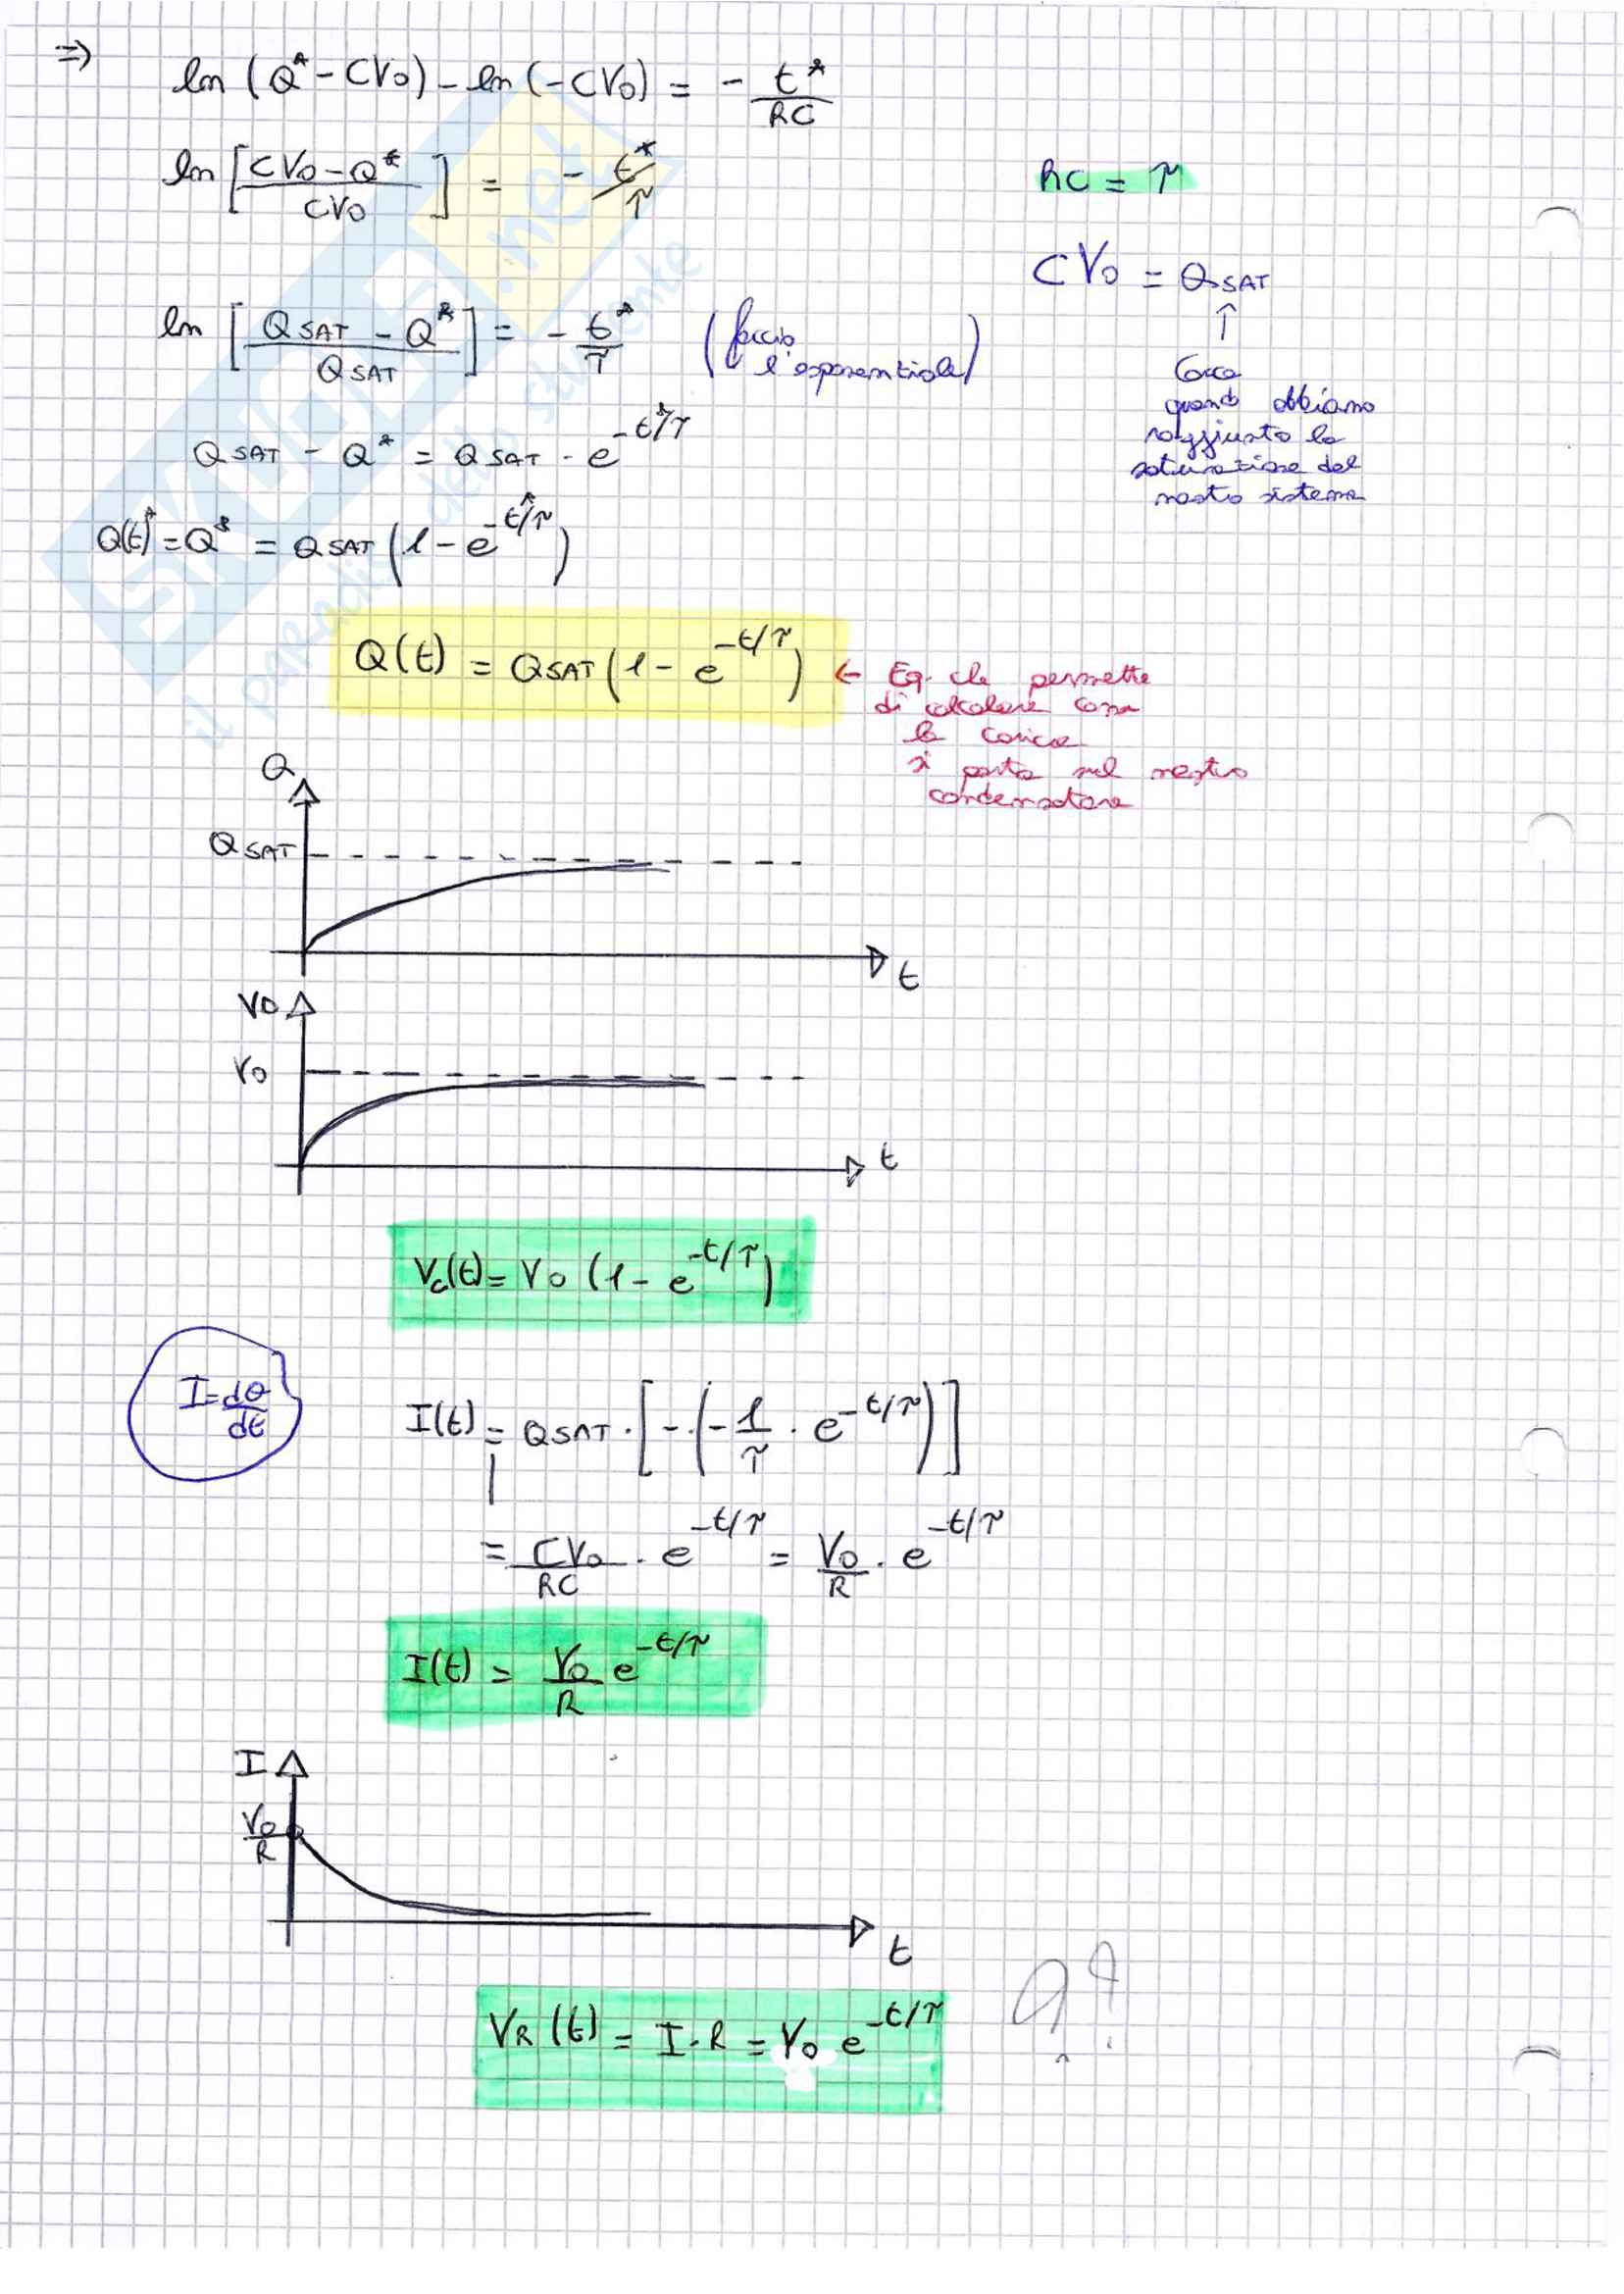 => ln (Q* - CV0) - ln (-CV0) = - t*/RC
ln [(CV0 - Q*)/CV0] = - t*/τ
RC = τ
CV0 = QSAT
↑
Carica
quando abbiamo
raggiunto la
saturazione del
nostro sistema
ln [(QSAT - Q*)/QSAT] = - t*/τ (faccio l'esponenziale)
QSAT - Q* = QSAT · e^-t*/τ
Q(t)* = Q* = QSAT (1 - e^-t*/τ)
Q(t) = QSAT (1 - e^-t/τ) ← Eq. che permette
di calcolare come
la carica
si porta sul nostro
condensatore
Q
QSAT
t
V0
V0
t
Vc(t) = V0 (1 - e^-t/τ)
I = dQ/dt
I(t) = QSAT · [-(-1/τ · e^-t/τ)]
= CV0/RC · e^-t/τ = V0/R · e^-t/τ
I(t) = V0/R e^-t/τ
I
V0/R
t
VR(t) = I·R = V0 e^-t/τ
SKUOLA.net
il paradiso dello studente